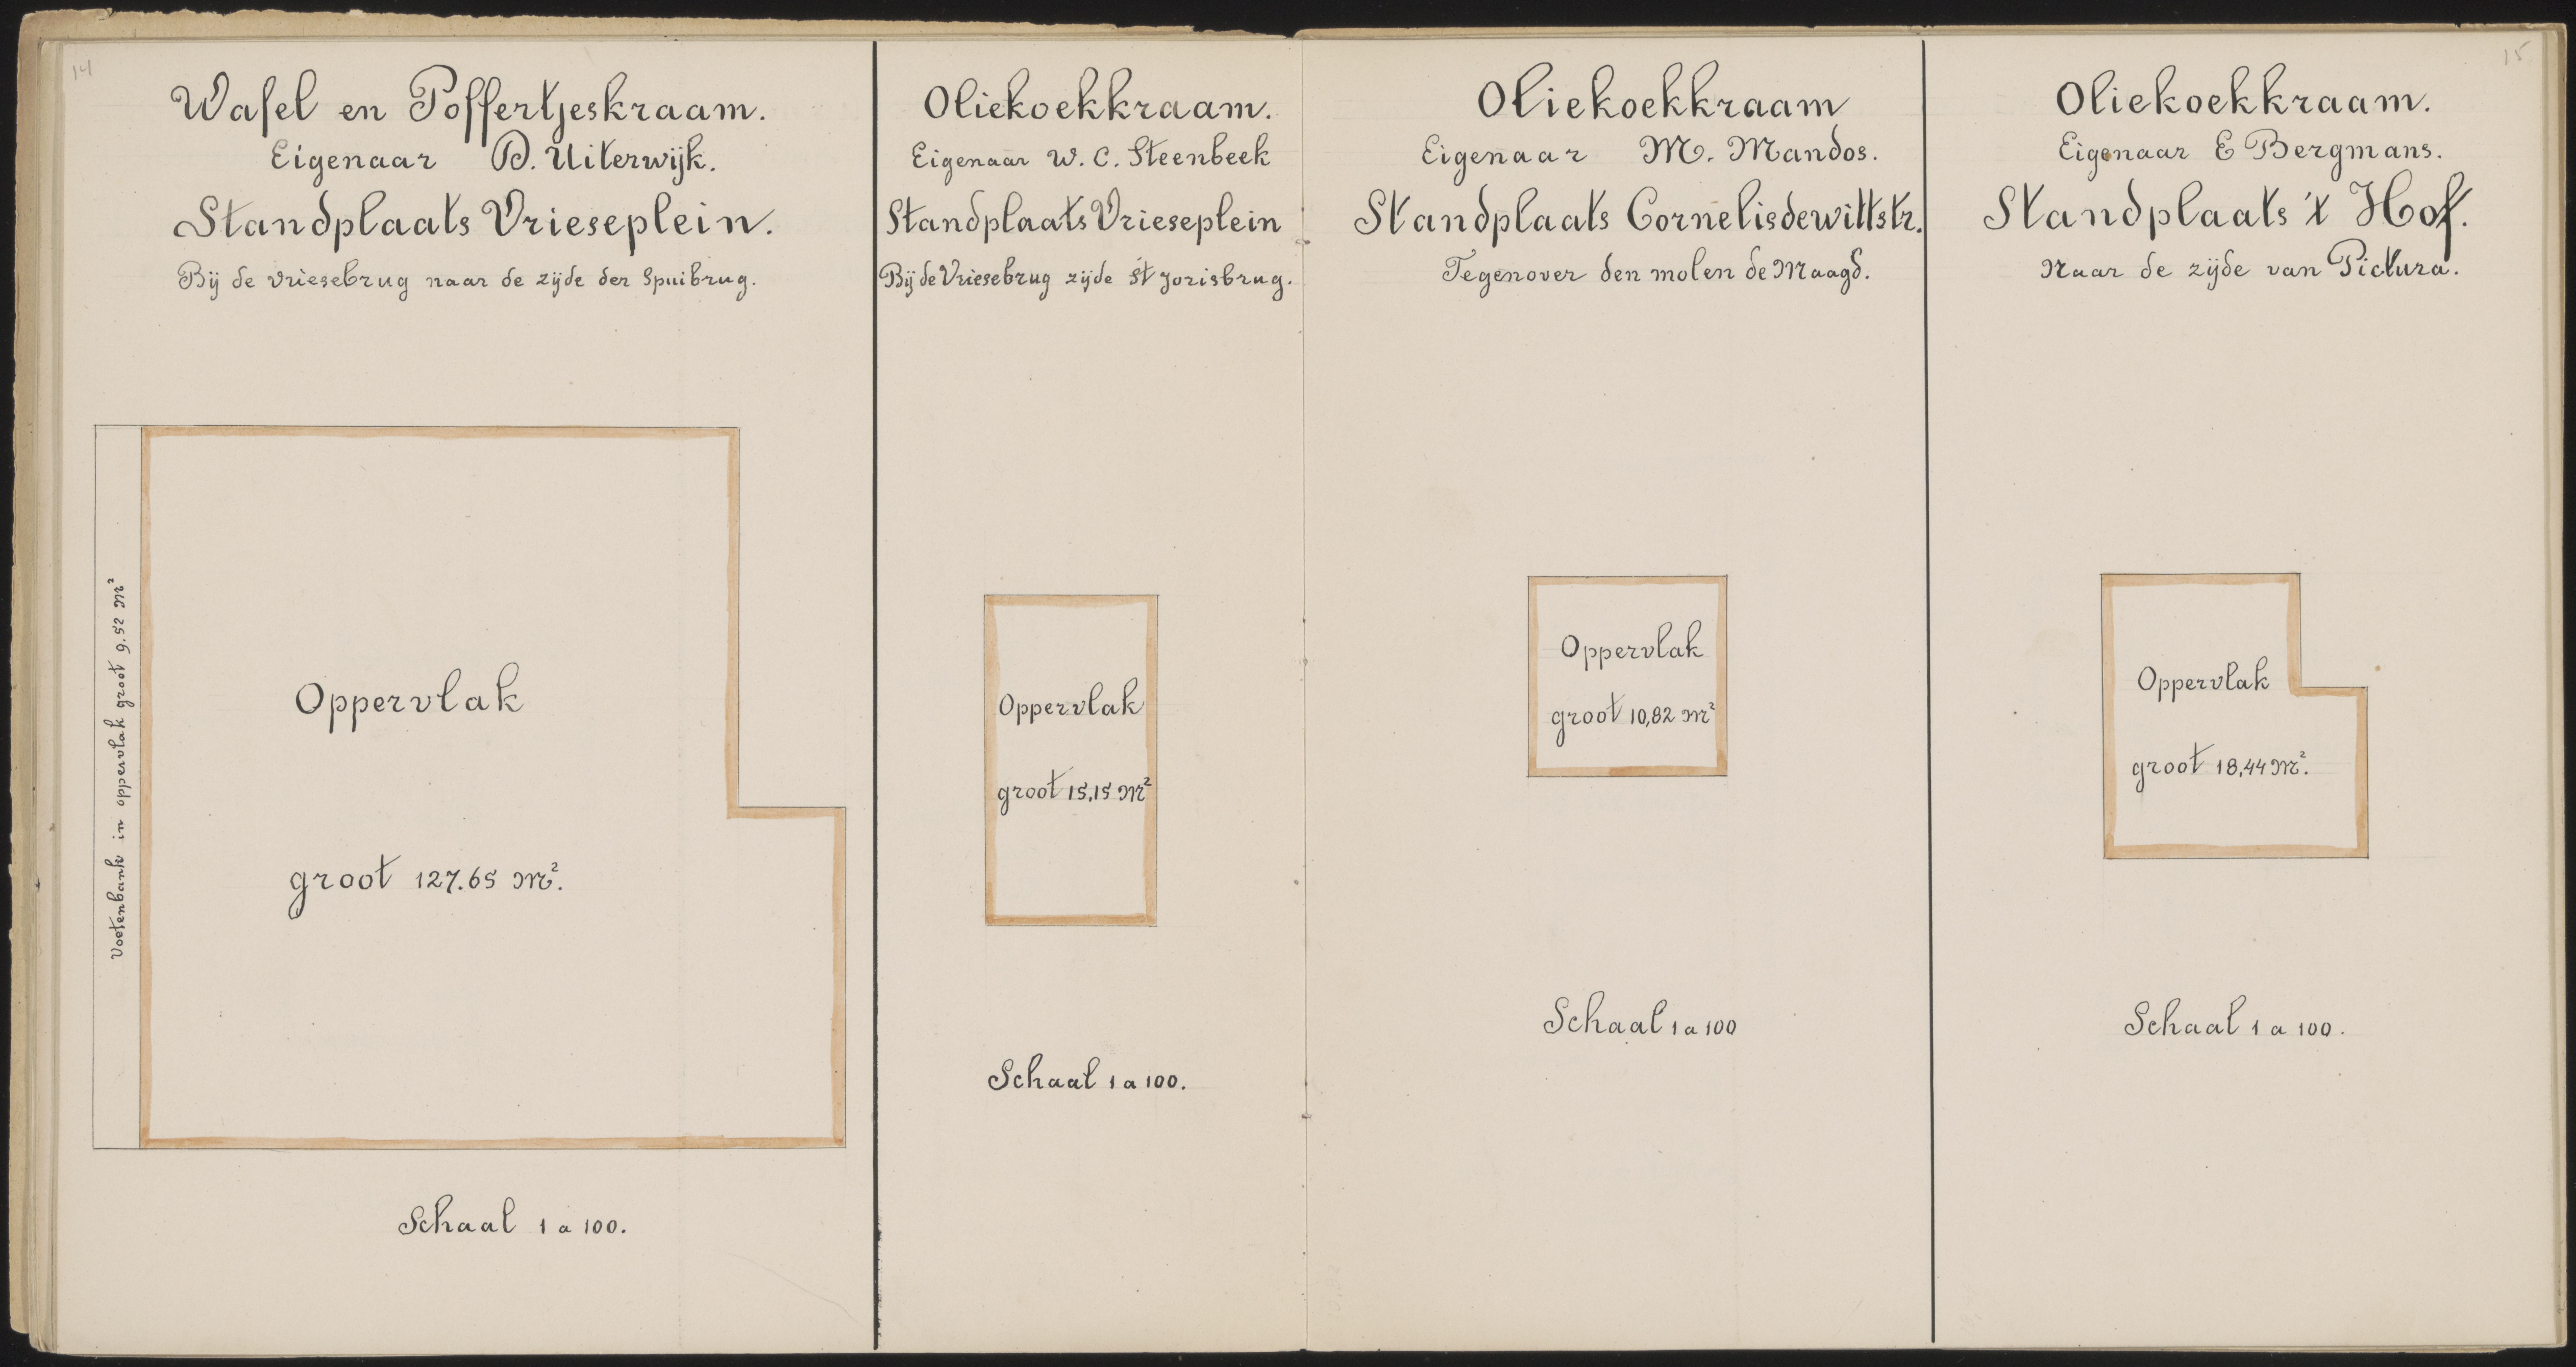 14
Wafel en Poffertjeskraam.
Eigenaar D. Uiterwijk.
Standplaats Vrieseplein.
Bij de Vriesebrug naar de zijde der Spuibrug.
Voetenbank in oppervlak groot 9.52 M²
Oppervlak
groot 127.65 M².
Schaal 1 a 100.
Oliekoekkraam.
Eigenaar W. C. Steenbeek
Standplaats Vrieseplein
Bij de Vriesebrug zijde St Jorisbrug.
Oppervlak
groot 15,15 M²
Schaal 1 a 100.
Oliekoekkraam
Eigenaar M. Mandos.
Standplaats Cornelisdewittstr.
Tegenover den molen de Maagd.
Oppervlak
groot 10,82 M²
Schaal 1 a 100
15
Oliekoekkraam.
Eigenaar E Bergmans.
Standplaats 't Hof.
Naar de zijde van Pictura.
Oppervlak
groot 18,44 M².
Schaal 1 a 100.